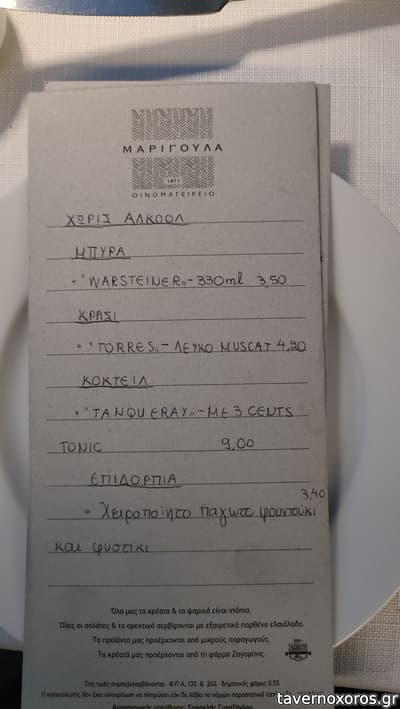 ΜΑΡΙΓΟΥΛΑ
1971
ΟΙΝΟΜΑΓΕΙΡΕΙΟ
ΧΩΡΙΣ ΑΛΚΟΟΛ
ΜΠΥΡΑ
• "WARSTEINER" - 330ml 3,50
ΚΡΑΣΙ
• "TORRES" - ΛΕΥΚΟ MUSCAT 4,90
ΚΟΚΤΕΙΛ
• "TANQUERAY" - ΜΕ 3 CENTS
TONIC 9,00
ΕΠΙΔΟΡΠΙΑ
3,40
• Χειροποίητο παγωτο φουντούκι
και φυστικι
Όλα μας τα κρέατα & τα ψαρικά είναι ντόπια.
Όλες οι σαλάτες & τα ορεκτικά σερβίρονται με εξαιρετικό παρθένο ελαιόλαδο.
Τα προϊόντα μας προέρχονται από μικρούς παραγωγούς.
Τα κρέατά μας προέρχονται από τη φάρμα Ζαγορίτης.
Στις τιμές συμπεριλαμβάνονται: Φ.Π.Α. 13% & 24% - δημοτικός φόρος 0,5%
Ο καταναλωτής δεν έχει υποχρέωση να πληρώσει εάν δε λάβει το νόμιμο παραστατικό
tavernoxoros.gr